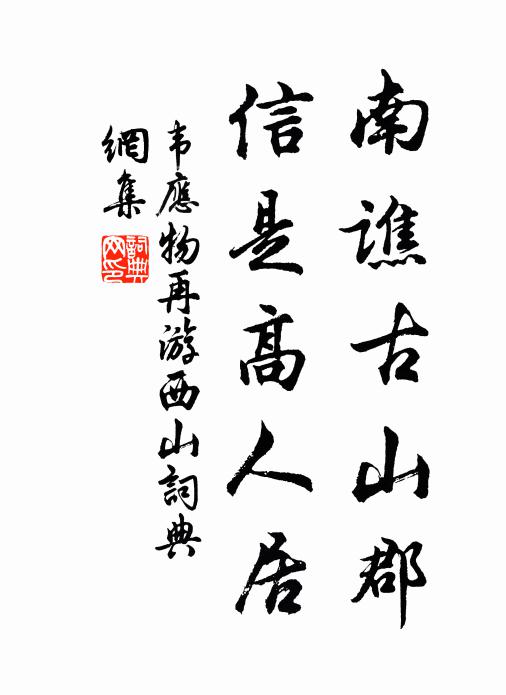 南譙古山郡
信是高人居
韦應物再游西山詞典
網集
詞典網印